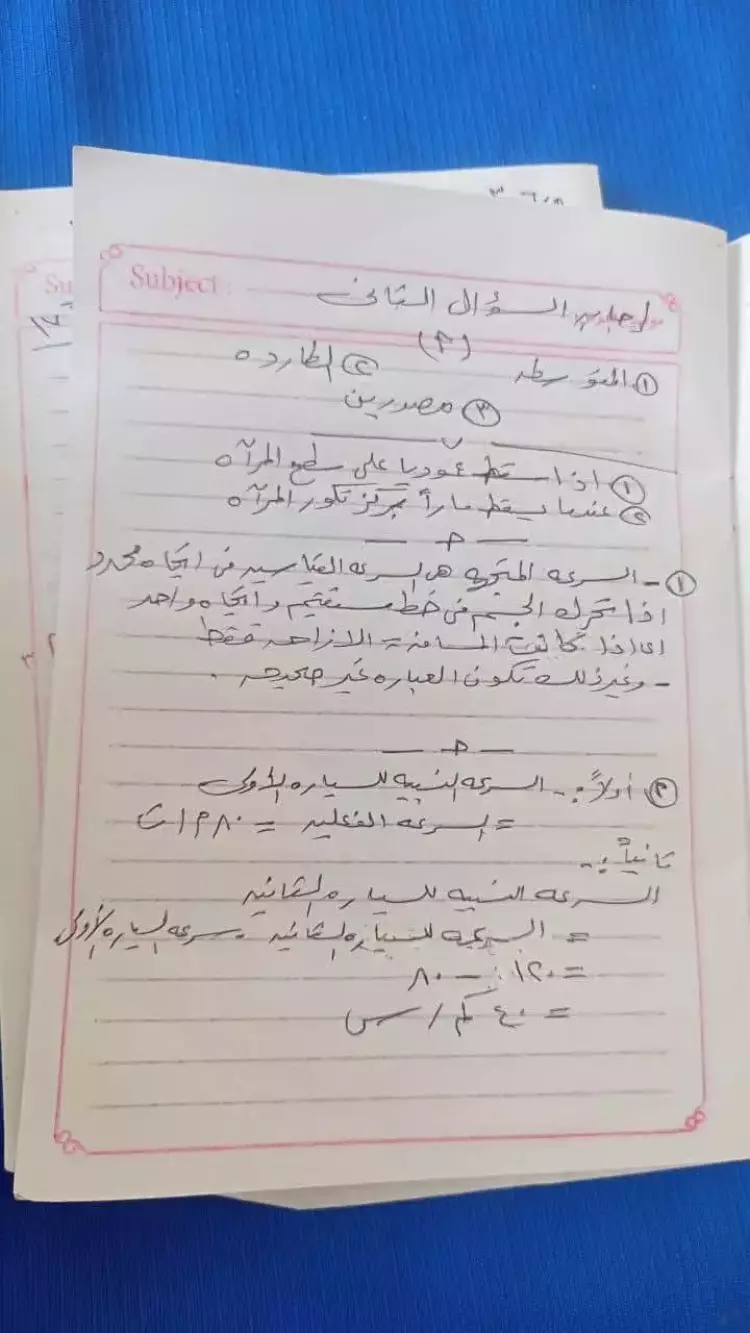 Subject :
السؤال الثانى
(٢)
① المتوسطه ② الطارده
③ مصدرين
ب
① اذا سقط عموديا على سطح المرآه
② عندما يسقط ماراً بمركز تكور المرآه
— ج —
① - السرعه المتجهه هى السرعه القياسيه فى اتجاه محدد
اذا تحرك الجسم فى خط مستقيم واتجاه واحد
اى اذا كانت المسافه = الازاحه فقط
- وغير ذلك تكون العباره غير صحيحه .
— د —
② أولاً :- السرعه النسبيه للسياره الأولى
= السرعه الفعليه = ٨٠ م/ث
ثانياً :-
السرعه النسبيه للسياره الثانيه
= السرعه للسياره الثانيه - سرعه السياره الأولى
= ١٢٠ - ٨٠
= ٤٠ كم / س